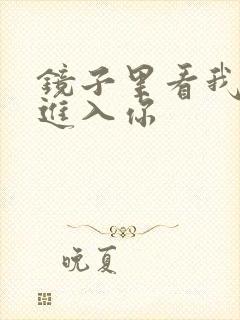 鏡子里看我
進入你
晚夏